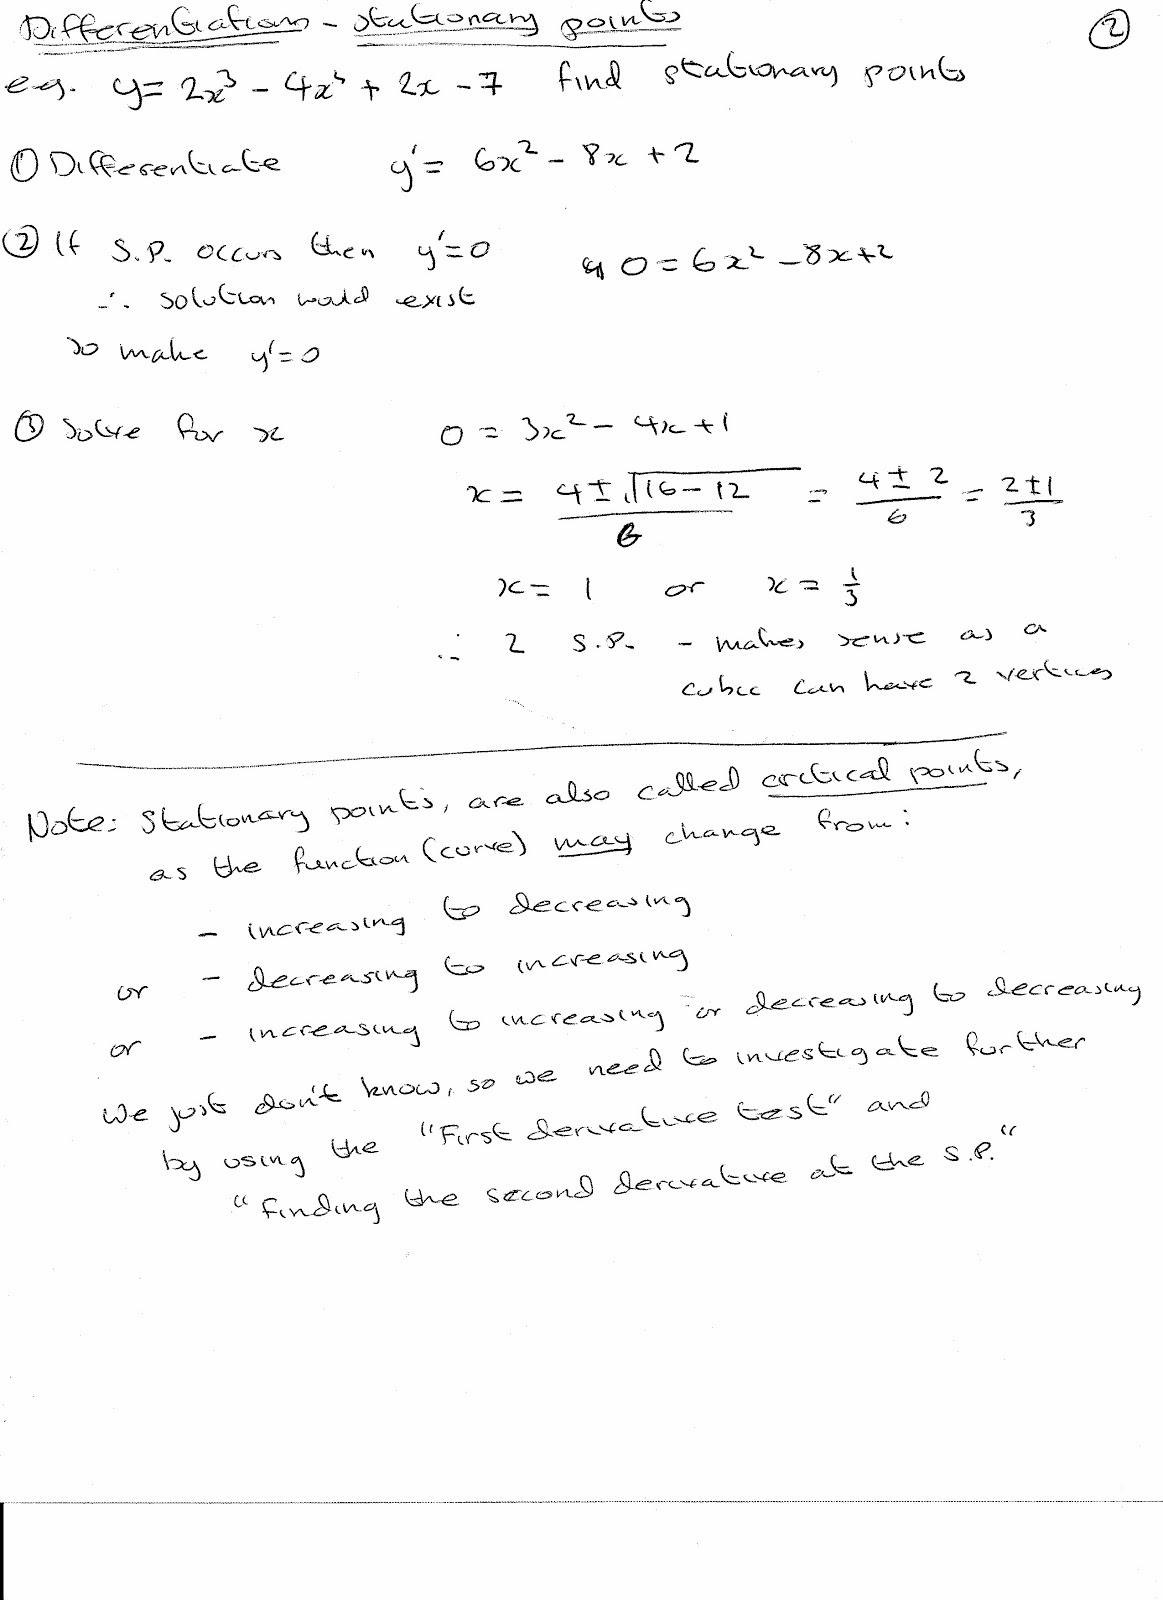 Differentiation - stationary points
②
e.g. y = 2x³ - 4x² + 2x - 7 find stationary points
① Differentiate y' = 6x² - 8x + 2
② If S.P. occurs then y'=0 0 = 6x² - 8x + 2
∴ solution would exist
so make y'=0
③ Solve for x 0 = 3x² - 4x + 1
x = (4 ± √(16 - 12))/6 = (4 ± 2)/6 = (2 ± 1)/3
x = 1 or x = 1/3
∴ 2 S.P. - makes sense as a
cubic can have 2 vertices
Note: Stationary points, are also called critical points,
as the function (curve) may change from:
- increasing to decreasing
or - decreasing to increasing
or - increasing to increasing or decreasing to decreasing
We just don't know, so we need to investigate further
by using the "First derivative test" and
"finding the second derivative at the S.P."